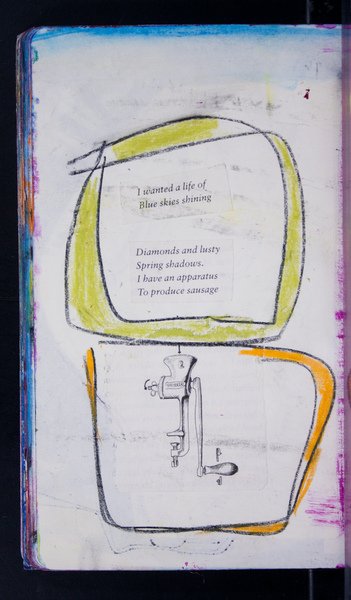 I wanted a life of
Blue skies shining
Diamonds and lusty
Spring shadows.
I have an apparatus
To produce sausage
2